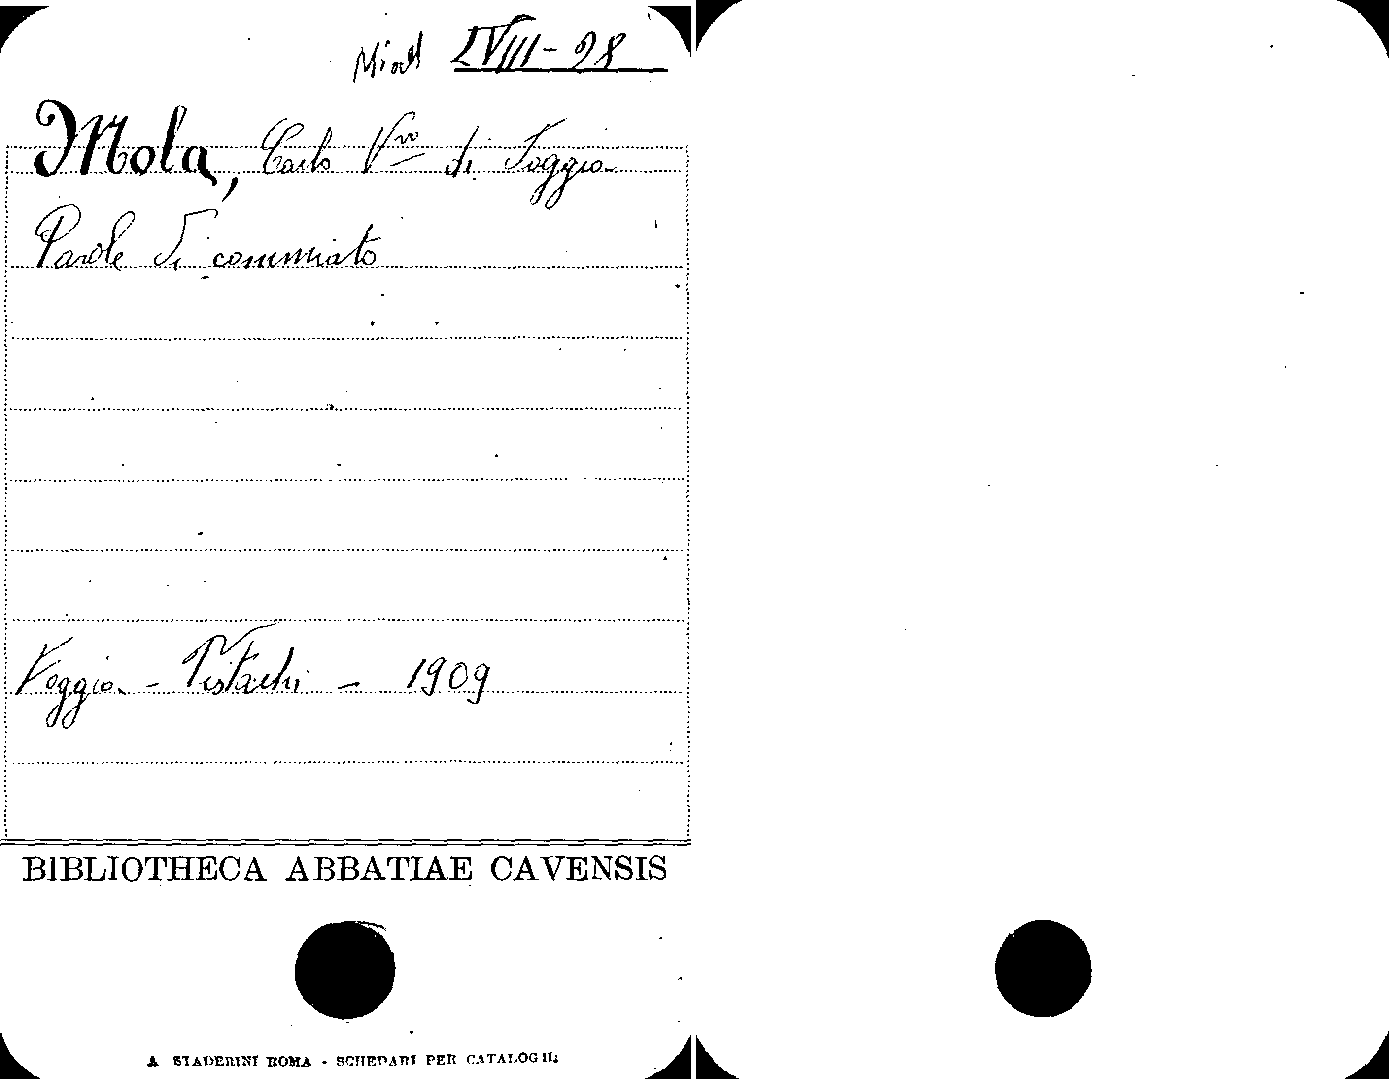 Misc LVIII-28
Mola, Carlo Vvo di Foggia
Parole di commiato
Foggia - Pistachi - 1909
BIBLIOTHECA ABBATIAE CAVENSIS
A STADERINI ROMA - SCHEDARI PER CATALOGHI